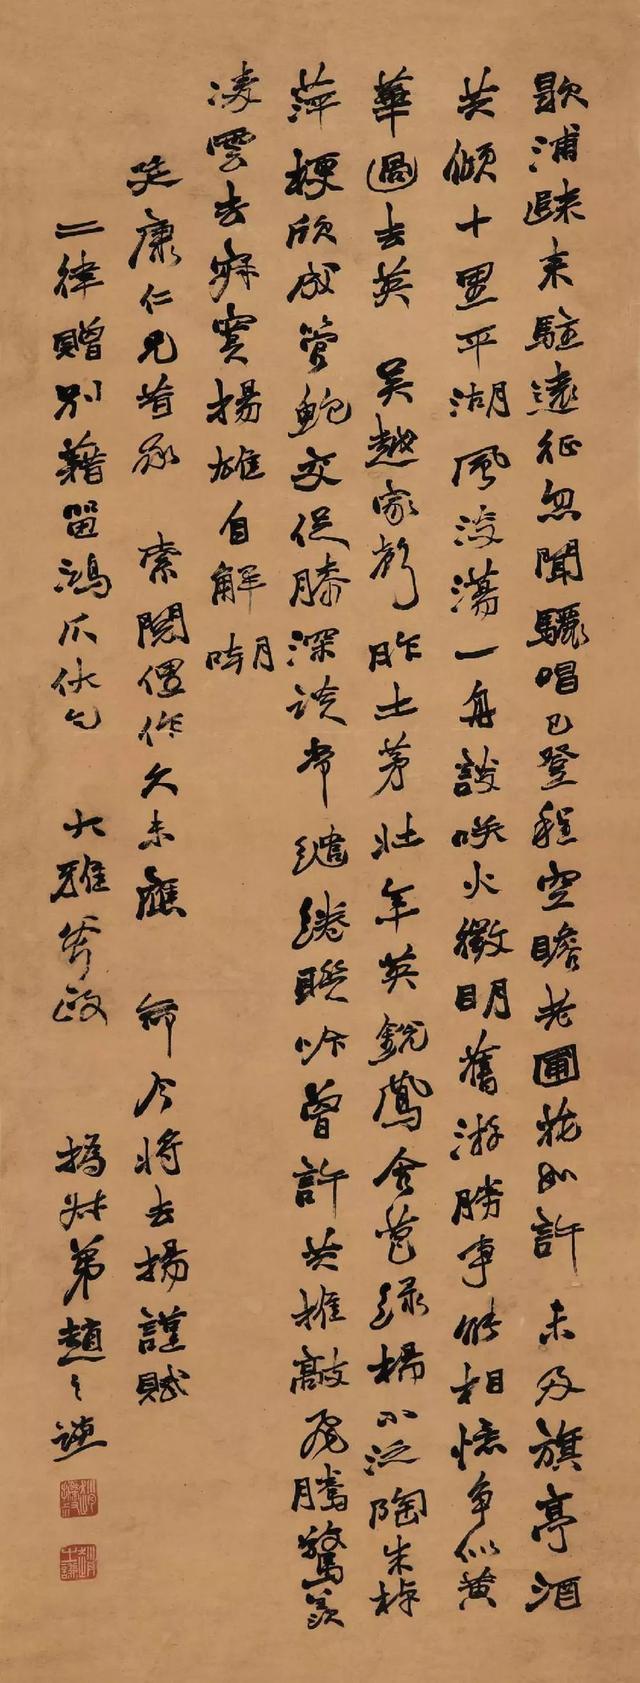 歇浦歸來駐遠征忽聞驪唱已登程空瞻老圃花如許未及旗亭酒
共傾十里平湖風浚蕩一舟談笑火微明舊游勝事能相憶爭似黃
華過去英 吳越家聲胙土茅壯年英銳鳳含苞綠楊小泛陶朱棹
萍梗欣成管鮑交促膝深談常繾綣聯吟曾許共推敲飛騰驚羨
凌雲去寂寞揚雄自解嘲
廷康仁兄昔承 索閱僅作久未應 命今將去揚謹賦
二律贈別藉留鴻爪伏乞 大雅斧政 撝叔弟趙之謙